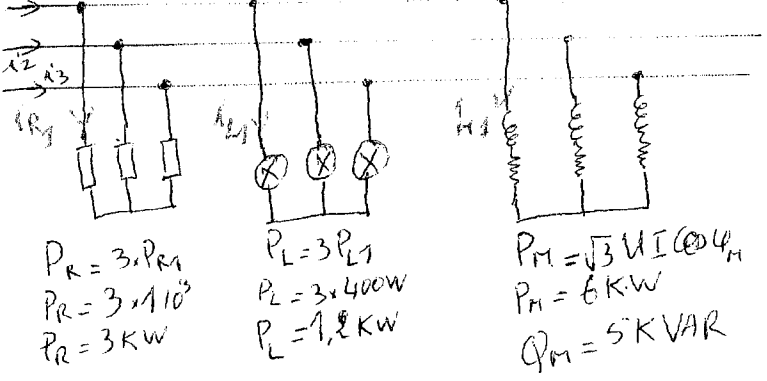 i2
i3
iR1
iL1
iM1
PR = 3×PR1
PR = 3×1 10³
PR = 3KW
PL = 3PL1
PL = 3×400W
PL = 1,2KW
PM = √3 UI cosφM
PM = 6KW
QM = 5KVAR